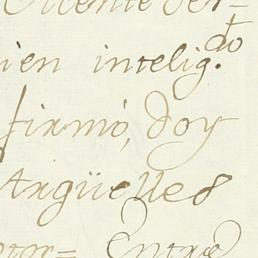 Vicente Ser=
ien intelig.do
firmó, doy
Argüelles
tor= Entre